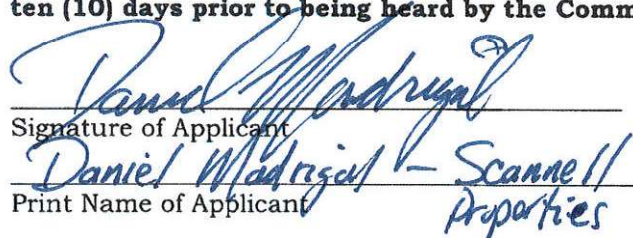 ten (10) days prior to being heard by the Comm
Daniel Madrigal
Signature of Applicant
Daniel Madrigal - Scannell
Properties
Print Name of Applicant